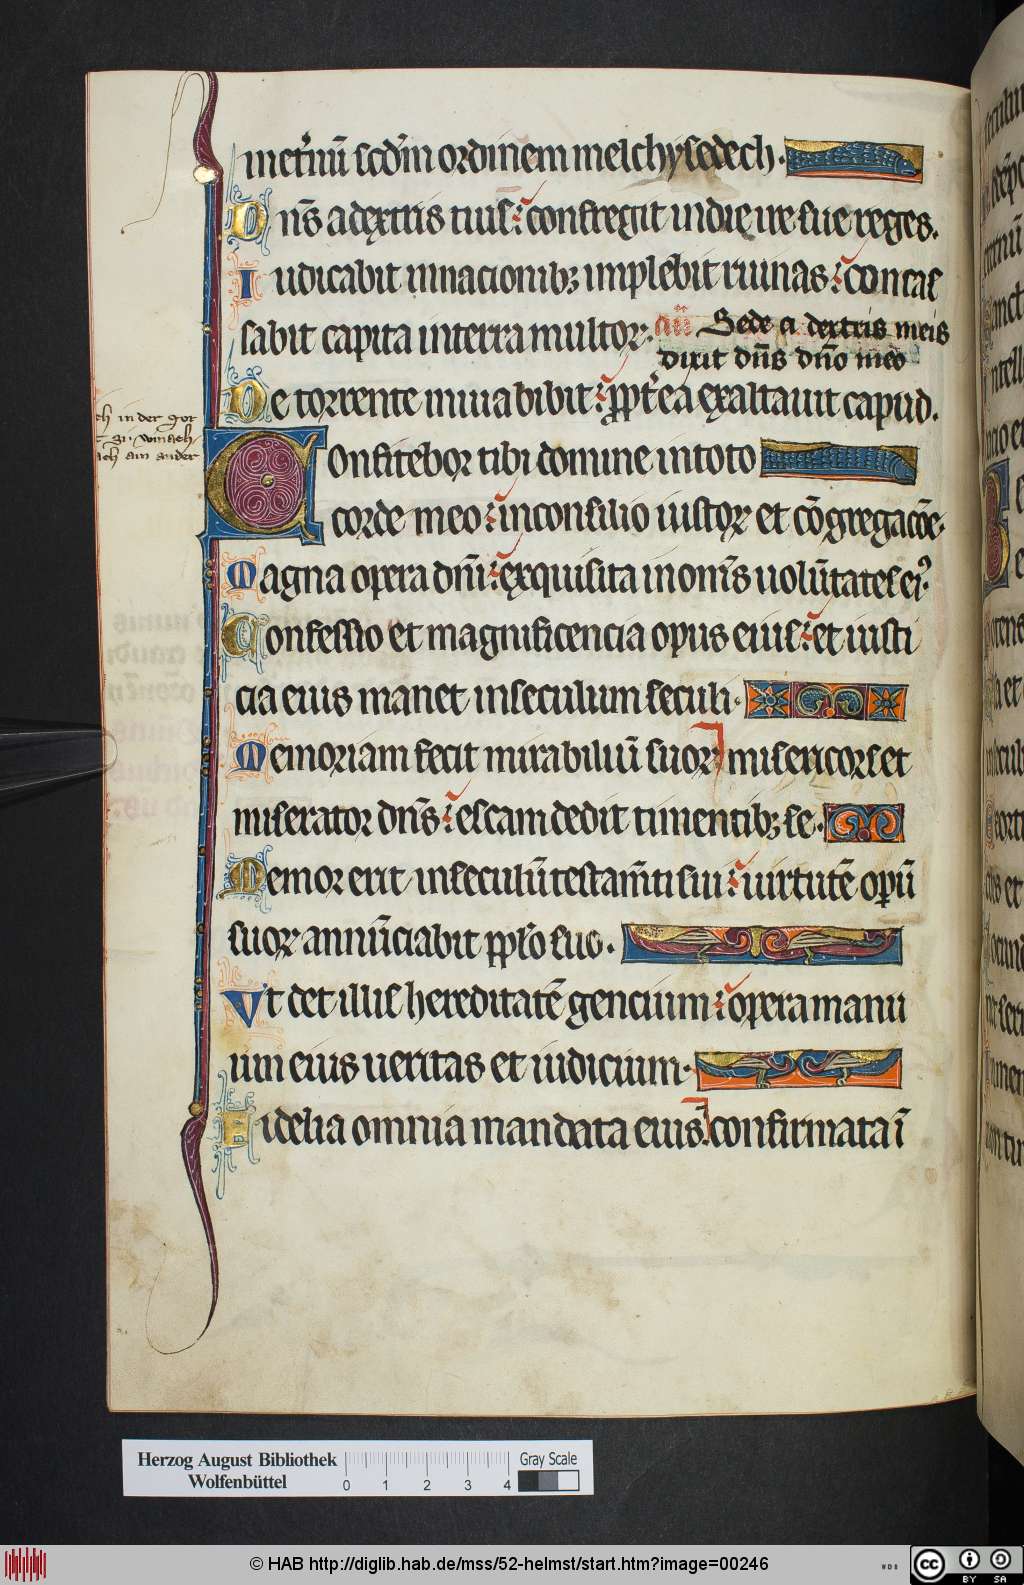 inet̉nũ scd̃m ordinem melchysedech.
Dñs a dextris tuis: confregit in die ire sue reges.
Iudicabit in nacionibꝫ implebit ruinas: con cas
sabit capita in terra multoꝝ. añ Sede a dextris meis
dixit dñs dño meo
De torrente in uia bibit: ꝓpt̉ea exaltauit capud.
Confitebor tibi domine in toto
corde meo: in consilio iustoꝝ et cõgregacõe.
Magna opera dñi: exquisita in om̃s uolũtates eiꝰ.
Confessio et magnificencia opus eius: et iusti
cia eius manet in seculum seculi.
Memoriam fecit mirabiliũ suoꝝ misericors et
miserator dñs: escam dedit timentibꝫ se.
Memor erit in seculũ testam̃ti sui: uirtutẽ opeꝝ̃
suoꝝ annũciabit pp̃lo suo.
Vt det illis hereditatẽ gencium: opera manu
um eius ueritas et iudicium.
Fidelia omnia mandata eius: confirmata ĩ
ch in der got
ach ain ander
Herzog August Bibliothek
Wolfenbüttel
0 1 2 3 4
Gray Scale
© HAB http://diglib.hab.de/mss/52-helmst/start.htm?image=00246
WDB
cc BY SA